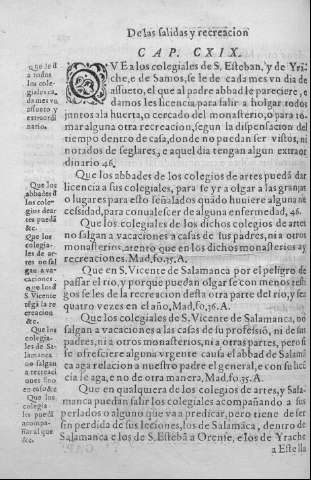 De las salidas y recreacion
CAP. CXIX.
QVE a los colegiales de S. Esteban, y de Yra
che, e de Samos, se le de cada mes vn dia de
assueto, el que al padre abbad le pareciere, e
damos les licencia para salir a holgar todos
juntos a la huerta, o cercado del monasterio, o para to-
mar alguna otra recreacion, segun la dispensacion del
tiempo dentro de casa, donde no puedan ser vistos, ni
notados de seglares, e aquel dia tengan algun extraor
dinario 46.
Que los abbades de los colegios de artes puedā dar
licencia a sus colegiales, para se yr a olgar a las granjas
o lugares para esto señalados quādo huuiere alguna ne
cessidad, para conualescer de alguna enfermedad, 46.
Que los colegiales de los dichos colegios de artes
no salgan a vacaciones a casas de sus padres, ni a otros
monasterios, atento que en los dichos monasterios ay
recreaciones. Mad, fo. 35. A.
Que en S. Vicente de Salamanca por el peligro de
passar el rio, y porque puedan olgar se con menos ries
gos se les de la recreacion desta otra parte del rio, y sea
quatro vezes en el año, Mad, fo, 36. A.
Que los colegiales de S. Vicente de Salamanca, no
salgan a vacaciones a las casas de su professiō, ni de sus
padres, ni a otros monasterios, ni a otras partes, pero si
se ofresciere alguna vrgente causa el abbad de Salamā
ca aga relacion a nuestro padre el general, e con su licē
cia se aga, e no de otra manera, Mad, fo. 35. A.
Que en qualquera de los colegios de artes, y Sala-
manca puedan salir los colegiales acompañando a sus
perlados o alguno que va a predicar, pero tiene de ser
sin perdida de sus leciones, los de Salamāca, dentro de
Salamanca e los de S. Estebā a Orense, e los de Yrache
a Estella
Que se dē
a todos
los cole-
giales cada
mes vn
assueto y
extraordi
nario.
Que los
abbades
de los cole-
gios de ar-
tes puedā
&c.
Que los
colegia-
les de ar-
tes no sal
gan a va-
caciones.
Que los d̄
S. Vicente
tēgā la re
creacion
&c.
Que los
colegia-
les de Sa-
lamanca
no salgan
a recreaci
ones sino
en caso &c
Que los
colegia
les pueda
acompa-
ñar al que
&c.